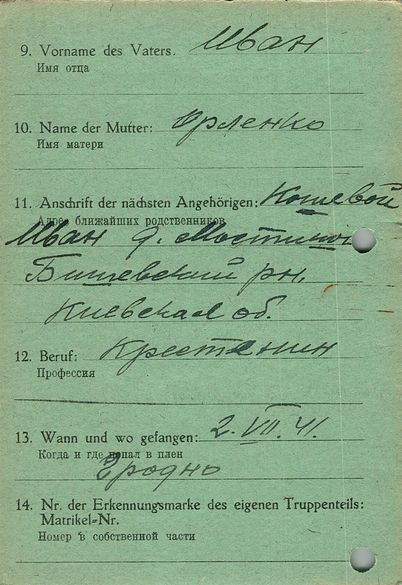 9. Vorname des Vaters. Иван
Имя отца
10. Name der Mutter: Орленко
Имя матери
11. Anschrift der nächsten Angehörigen: Кошевой
Адрес ближайших родственников
Иван д.
Бишевский рн.
Киевская об.
12. Beruf: Крестянин
Профессия
13. Wann und wo gefangen: 2. VII. 41.
Когда и где попал в плен
Гродно
14. Nr. der Erkennungsmarke des eigenen Truppenteils:
Matrikel-Nr.
Номер в собственной части